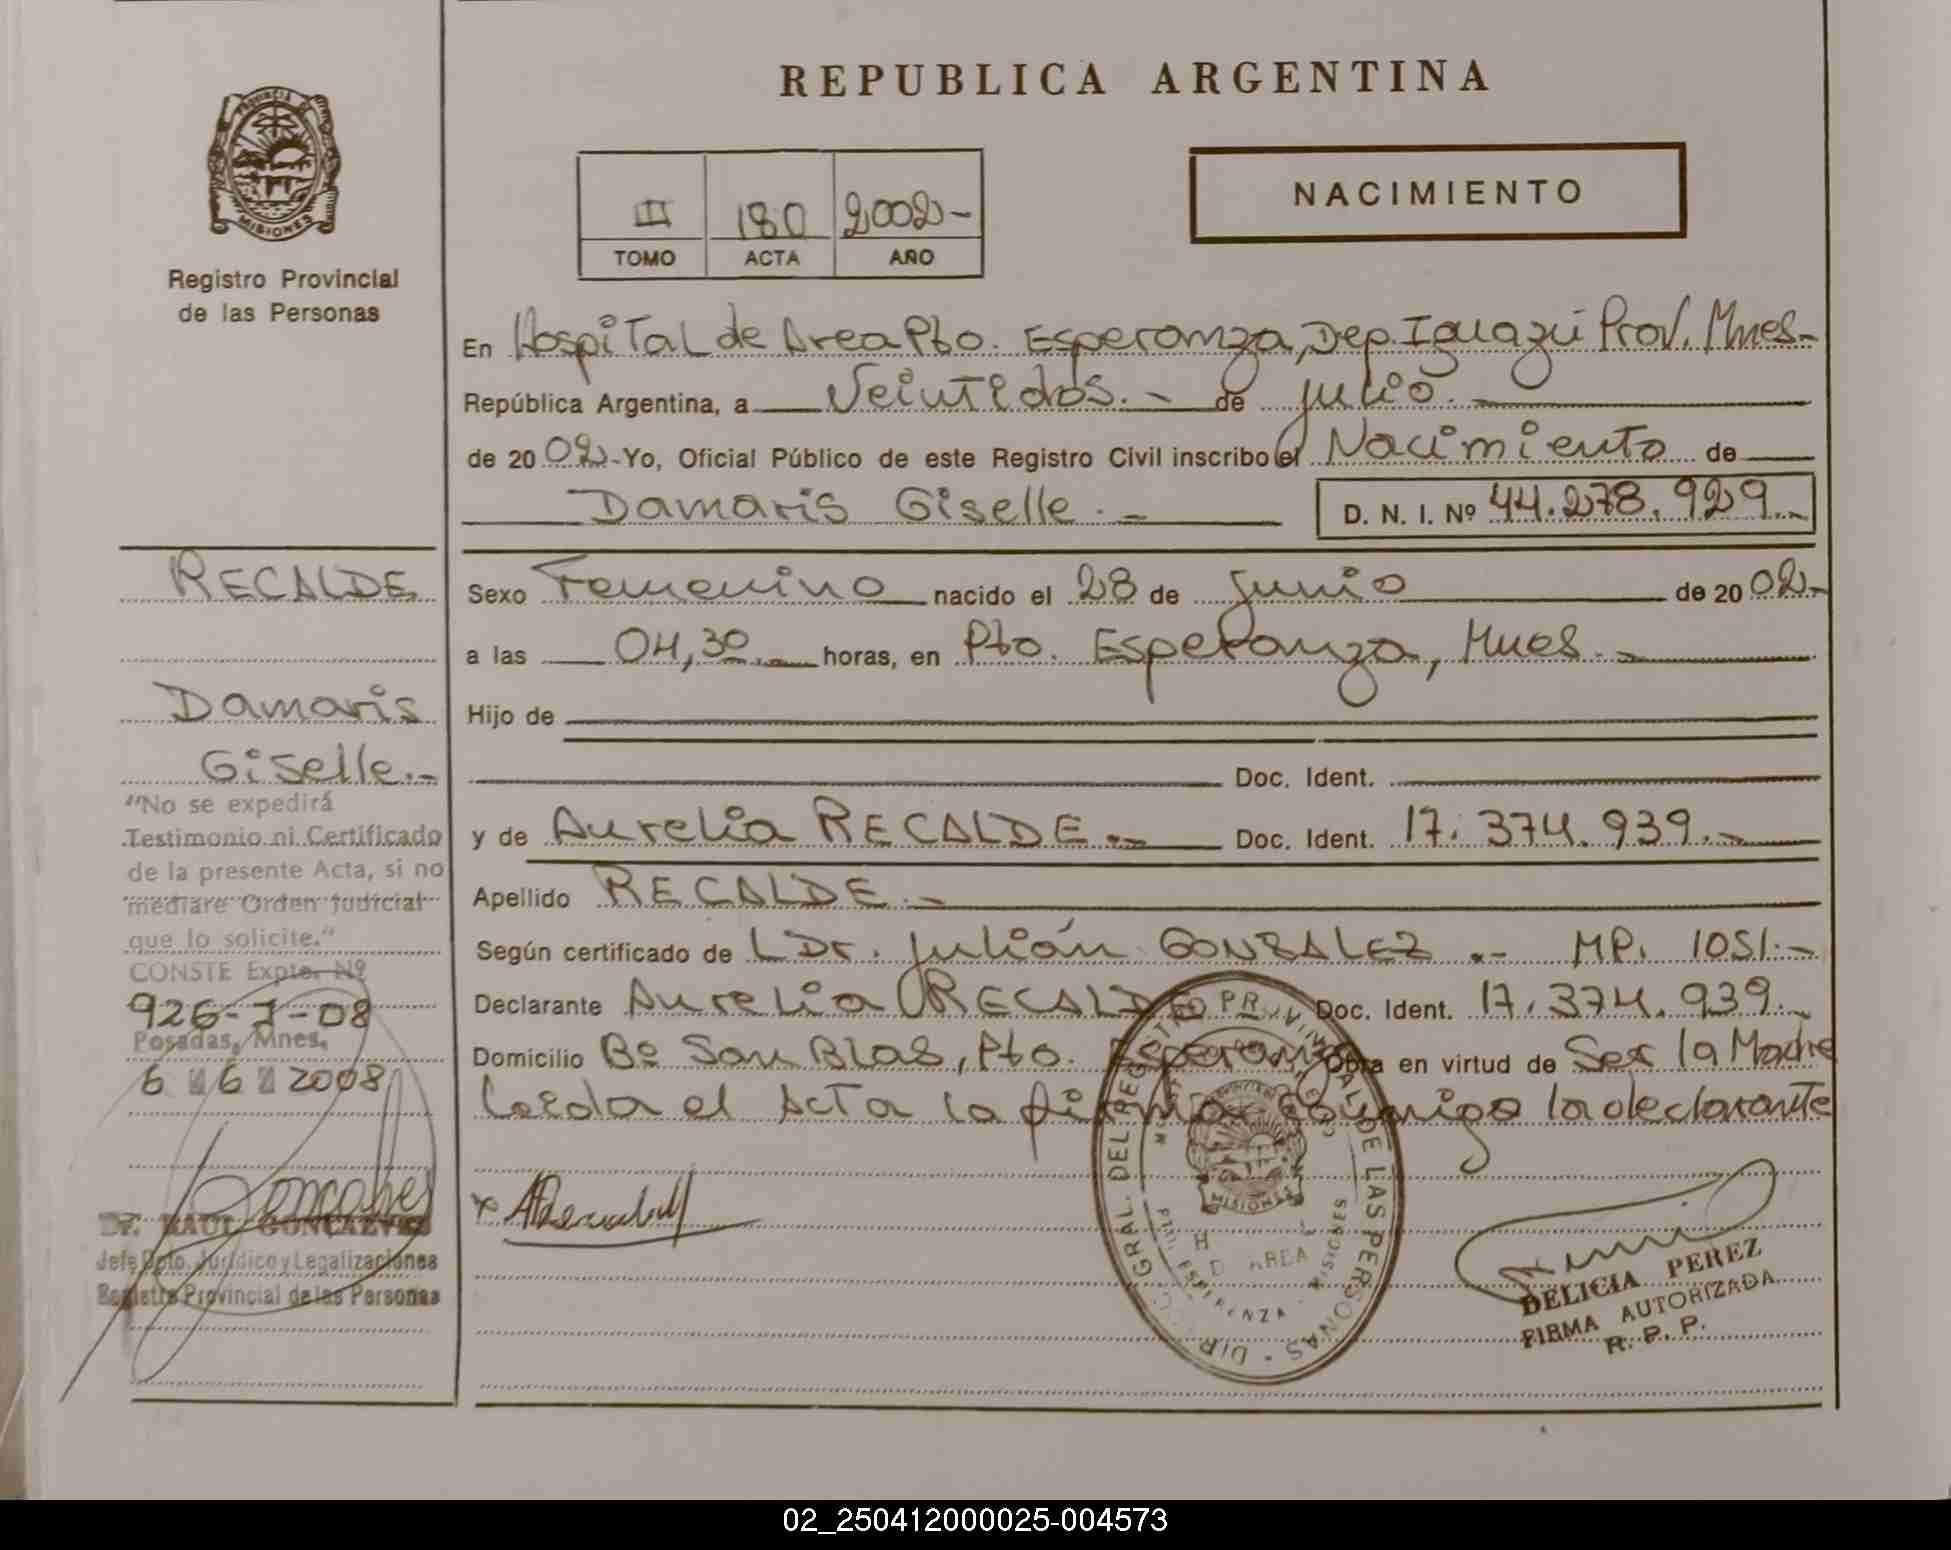 REPUBLICA ARGENTINA
NACIMIENTO
II 180 2002-
TOMO ACTA AÑO
PROVINCIA DE
MISIONES
Registro Provincial
de las Personas
En Hospital de Area Pto. Esperanza, Dep. Iguazú Prov. Mnes-
República Argentina, a Veintidos.- de julio.
de 2002-Yo, Oficial Público de este Registro Civil inscribo el Nacimiento de
Damaris Giselle.- D. N. I. Nº 44.278.929.-
Sexo Femenino nacido el 28 de junio de 2002.-
a las 04,30.- horas, en Pto. Esperanza, Mnes.-
Hijo de
Doc. Ident.
y de Aurelia RECALDE.- Doc. Ident. 17.374.939.-
Apellido RECALDE.-
Según certificado de L Dr. Julián GONZALEZ.- MP. 1051.-
Declarante Aurelia RECALDE Doc. Ident. 17.374.939.-
Domicilio Bº San Blas, Pto. Esperanza Obra en virtud de Ser la Madre
Leida el Acta la firma conmigo la declarante
RECALDE
Damaris
Giselle.-
"No se expedirá
Testimonio ni Certificado
de la presente Acta, si no
mediare Orden Judicial
que lo solicite."
CONSTE Expte. Nº
926-7-08
Posadas, Mnes,
6 6 2008
Dr. RAUL GONCALVES
Jefe Dpto. Jurídico y Legalizaciones
Registro Provincial de las Personas
x ARecalde
DIR. GRAL. DEL REGISTRO PROVINCIAL DE LAS PERSONAS
MISIONES
AREA
ESPERANZA - MISIONES
DELICIA PEREZ
FIRMA AUTORIZADA
R. P. P.
02_250412000025-004573